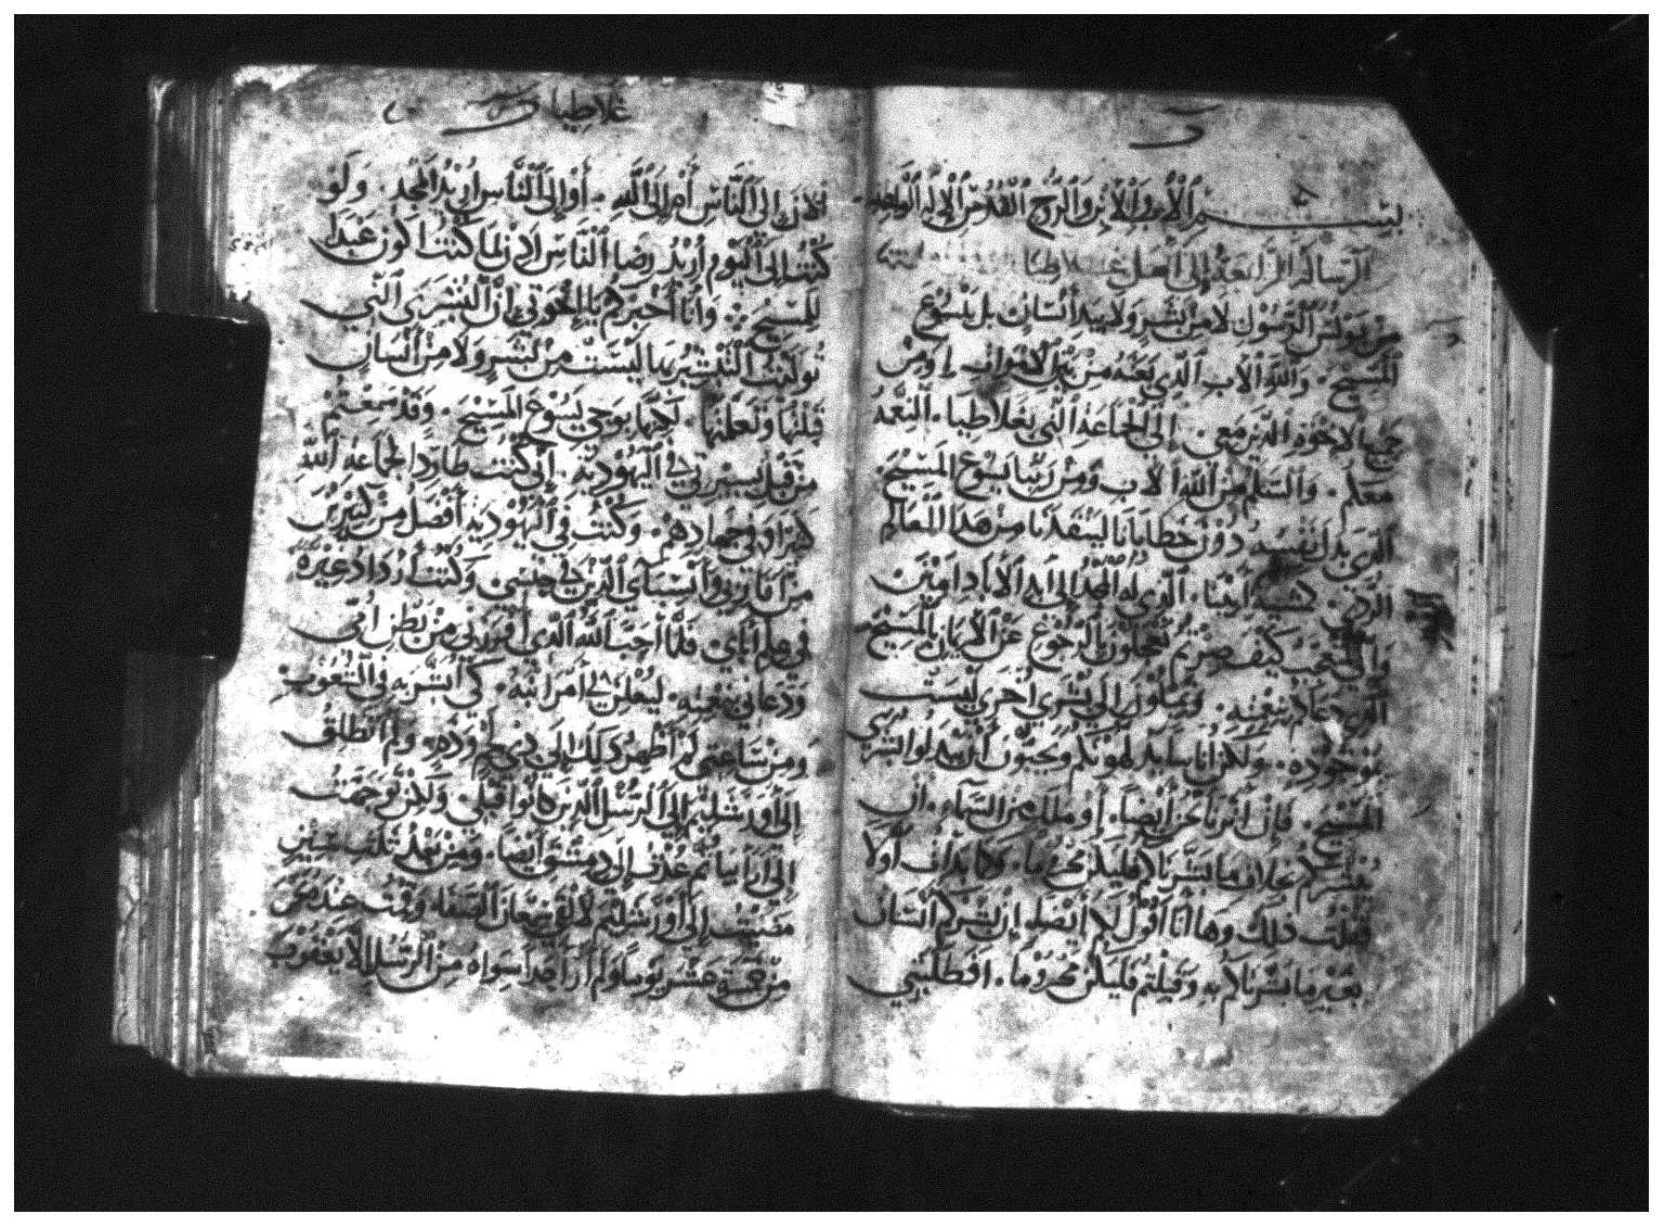 بسم الاب والابن والروح القدس الاله الواحد
الرسالة الرابعة إلى أهل غلاطيا
من بولس الرسول لا من بشر ولا بيد انسان بل بيسوع
المسيح. والله الاب الذي بعثه من بين الاموات. ومن
جميع الاخوة الذين معي. إلى الجماعة التي بغلاطيا. النعمة
معكم. والسلم من الله الاب ومن ربنا يسوع المسيح.
الذي بدل نفسه دون خطايانا لينقذنا من هذا العالم
الردي. كمشية أبينا. الذي له المجد إلى ابد الاباد امين
كيف صرتم تعجلون بالرجوع عن الايمان بالمسيح
الذي دعاكم بنعمته. وتميلون إلى بشرى أخرى ليست
بموجودة. ولكن اناسا
المسيح. فإن اثرنا نحن أيضا. أو ملك من السماء. ان
يبشركم بخلاف ما بشرناكم فليكن محروما. كما بدأت أولا
فقلت ذلك وها أنا أقول لكم أيضا. إن بشركم انسان
بغير ما بشرناكم به وقبلتم فليكن محروما. افطلبتي
غلاطيا
الان إلى الناس أم إلى الله. أو إلى الناس اريد المجد. ولو
كنت إلى اليوم أريد رضا الناس لما كنت اكون عبدا
للمسيح. وأنا أخبركم يا إخوتي إن البشرى التي
توليت التبشير بها ليست من بشر ولا من انسان
قبلتها وتعلمتها. لكنها بوحي يسوع المسيح. وقد سمعتم
من قبل بسيرتي في اليهودية. إني كنت طاردا لجماعة الله
كثيرا وكنت في اليهودية أفضل من كثيرين
من الذين في جنسي. وكنت أزداد غيرة
في علم آباي. فلما أحب الله الذي أفرزني من بطن امي
ودعاني بنعمته. ليعلن لي امر ابنه. كي ابشر به في الشعوب
ومن ساعتي لم أظهر ذلك إلى ذي لحم ودم. ولم انطلق
إلى أورشليم إلى الرسل الذين كانوا قبلي. ولكن توجهت
إلى ارابيا ثم عدت إلى دمشق أيضا. ومن بعد ثلث سنين
مضيت إلى أورشليم لالقى سمعان الصفا. وقمت عنده نحو
من خمسة عشر يوما ولم أر احدا سواه من الرسل إلا يعقوب